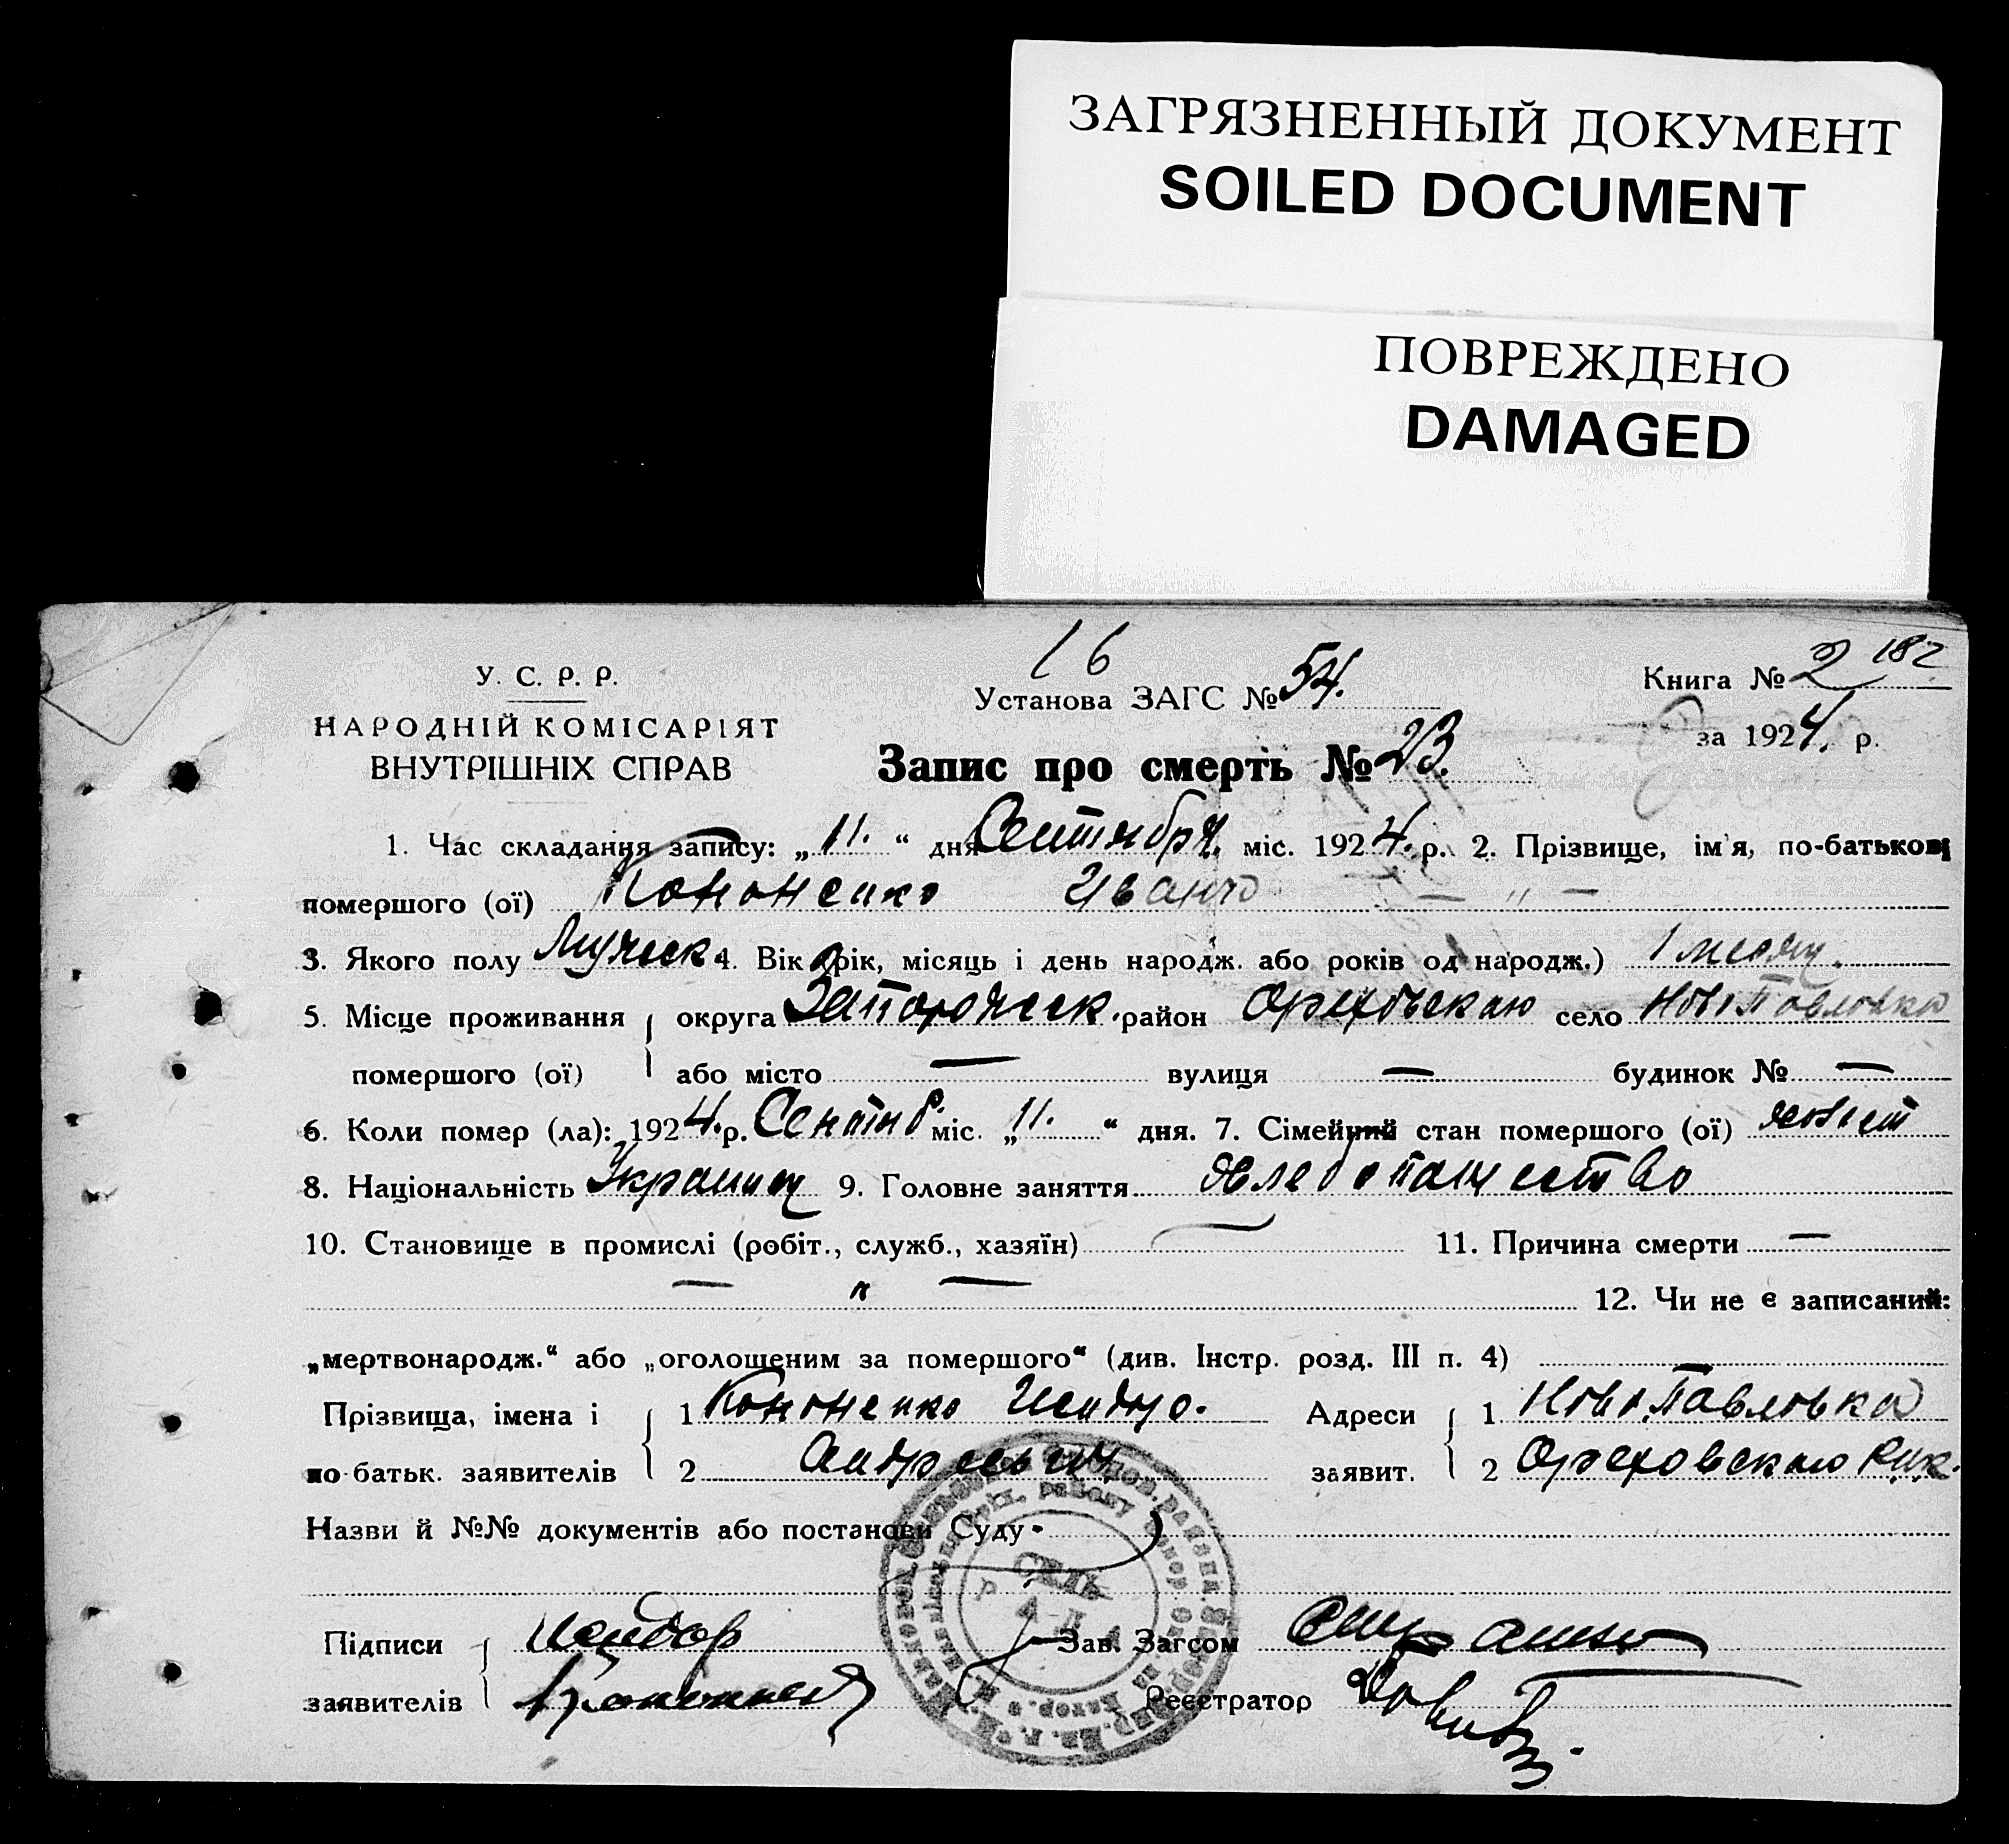 ЗАГРЯЗНЕННЫЙ ДОКУМЕНТ
SOILED DOCUMENT
ПОВРЕЖДЕНО
DAMAGED
16
182
У. С. Р. Р.
Установа ЗАГС № 54.
Книга № 2
НАРОДНІЙ КОМІСАРІЯТ
за 1924. р.
ВНУТРІШНІХ СПРАВ
Запис про смерть № 23.
1. Час складання запису: „ 11. “ дня Сентября міс. 1924. р. 2. Прізвище, ім'я, по-батькові
помершого (ої) Кононенко Иван — " —
3. Якого полу Мужеск. 4. Вік (рік, місяць і день народж. або років од народж.) 1 месяц.
5. Місце проживання округа Запорожеск. район Ореховскаго село Ново Павловка
помершого (ої) або місто — вулиця — будинок № —
6. Коли помер (ла): 1924. р. Сентяб. міс. „ 11. “ дня. 7. Сімейний стан помершого (ої)
8. Національність Украинц 9. Головне заняття Хлебопашество
10. Становище в промислі (робіт., служб., хазяїн) — 11. Причина смерти —
— " — 12. Чи не є записаний:
„мертвонародж.“ або „оголошеним за помершого“ (див. Інстр. розд. III п. 4)
Прізвища, імена і 1 Кононенко Исидор. Адреси 1 Ново Павловка
по-батьк. заявителів 2 Андреевич заявит. 2 Ореховскаго Рик.
Назви й №№ документів або постанови Суду
Підписи Исидор Зав. Загсом
заявителів Кононенко Реєстратор